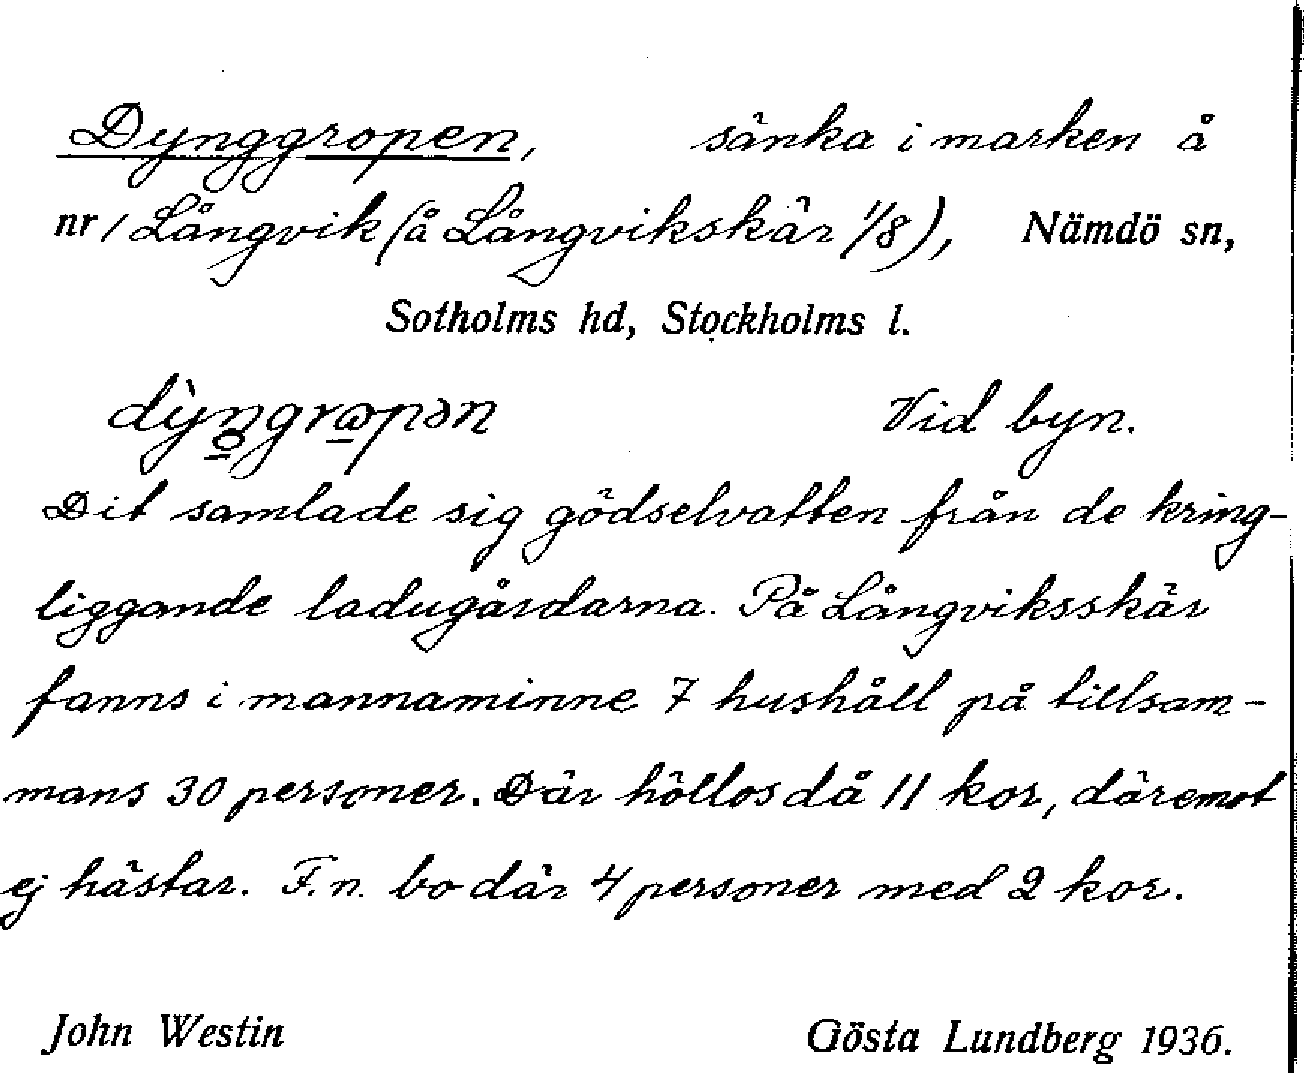 Dynggropen, sänka i marken å
nr 1 Långvik (å Långvikskär 1/8), Nämdö sn,
Sotholms hd, Stockholms l.
Vid byn.
Dit samlade sig gödselvatten från de kring-
liggande ladugårdarna. På Långviksskär
fanns i mannaminne 7 hushåll på tillsam-
mans 30 personer. Där höllos då 11 kor, däremot
ej hästar. F.n. bo där 4 personer med 2 kor.
John Westin Gösta Lundberg 1936.